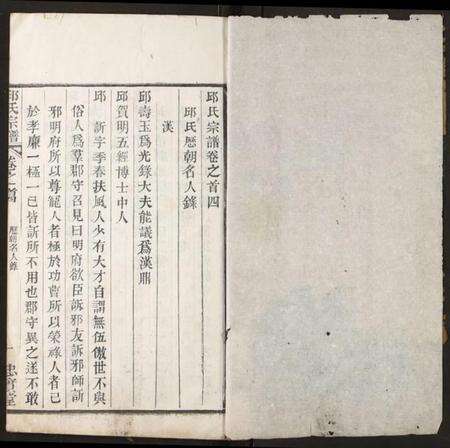 邱氏宗譜卷之首四
邱氏歷朝名人錄
漢
邱壽玉爲光錄大夫能議爲漢鼎
邱賀明五經博士中人
邱訢字季春扶風人少有大才自謂無伍傲世不與
俗人爲羣郡守召見曰明府欲臣訴邪友訴邪師訴
邪明府所以尊寵人者極於功曹所以榮祿人者已
於孝廉一極一已皆訴所不用也郡守異之遂不敢
邱氏宗譜
卷之首
歷朝名人錄
一
忠實堂